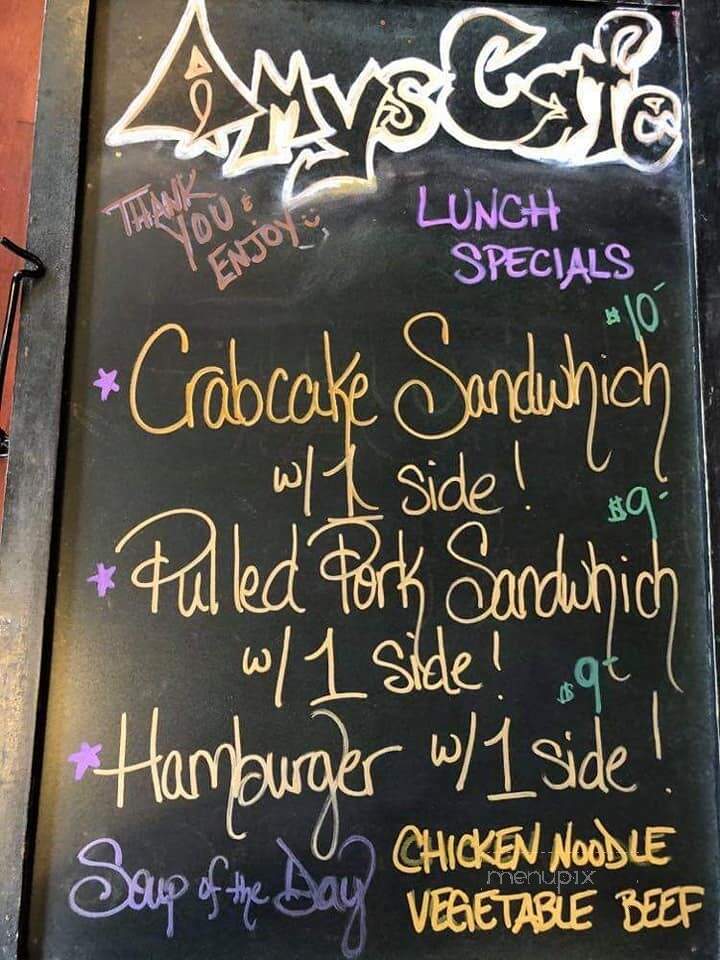 Amys Cafe
THANK
YOU &
ENJOY
LUNCH
SPECIALS
$10-
* Crabcake Sandwhich
w/ 1 side!
$9-
* Pulled Pork Sandwhich
w/ 1 side!
$9-
* Hamburger w/ 1 side!
Soup of the Day
CHICKEN NOODLE
menupix
VEGETABLE BEEF